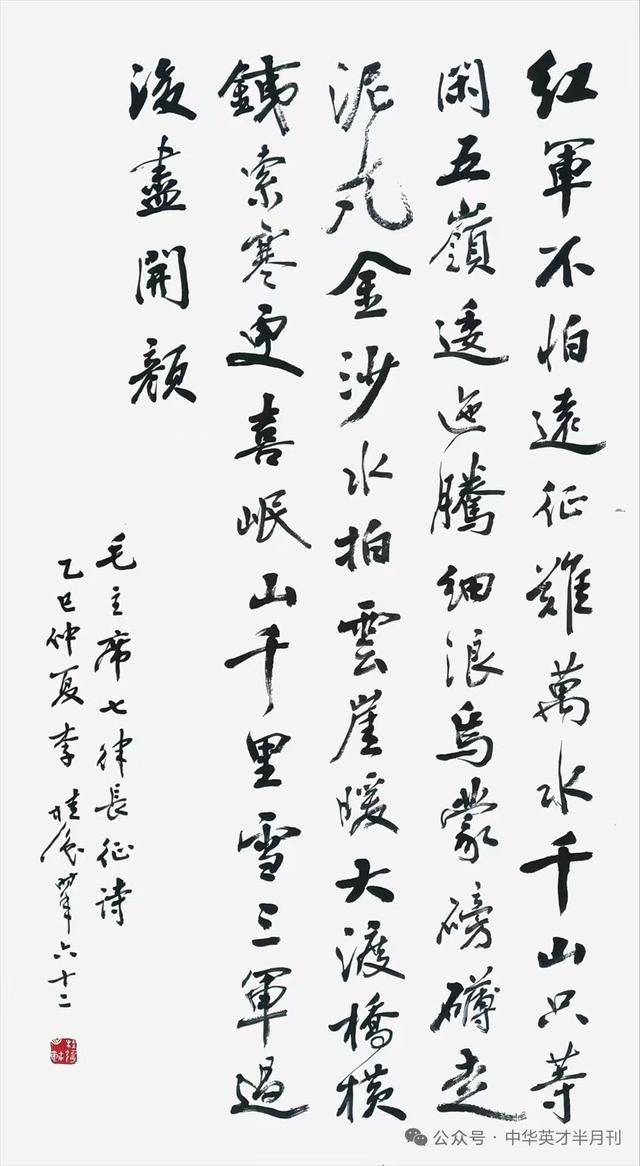 紅軍不怕遠征難萬水千山只等
閑五嶺逶迤騰細浪烏蒙磅礴走
泥丸金沙水拍雲崖暖大渡橋橫
銕索寒更喜岷山千里雪三軍過
後盡開顏
毛主席七律長征诗
乙巳仲夏李桂时年六十二
公众号·中华英才半月刊